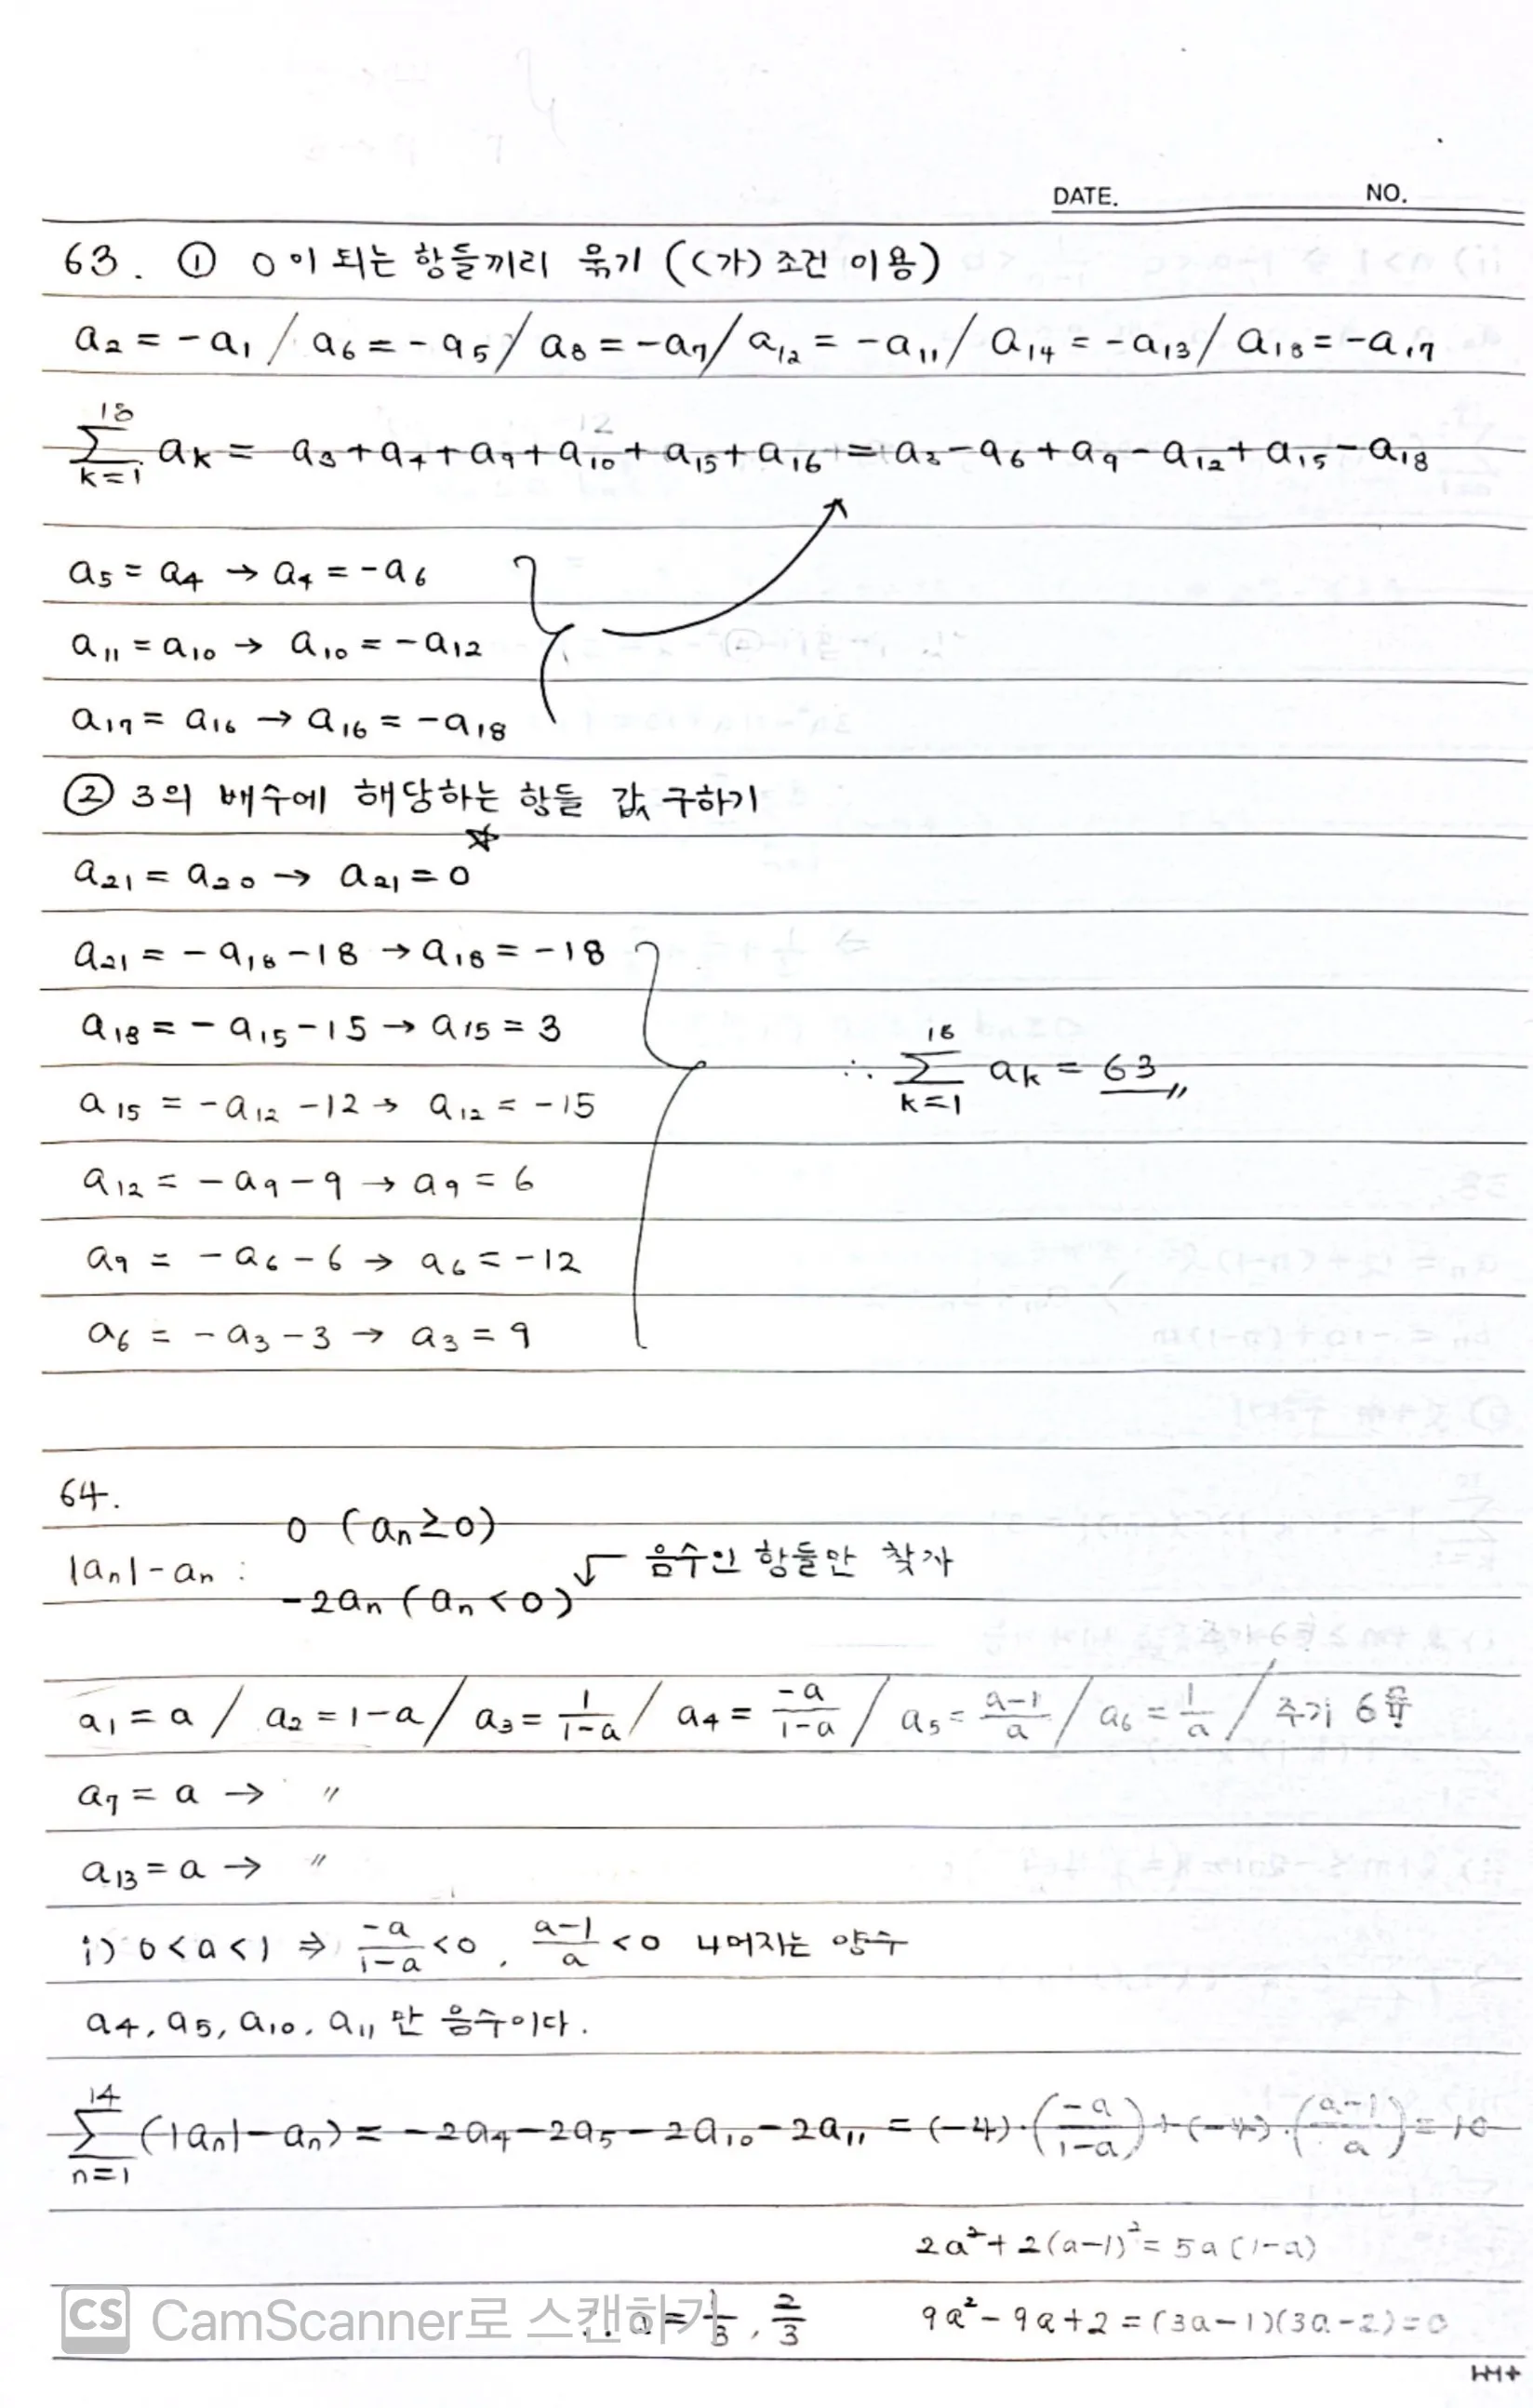 DATE. NO.
63. ① 0이 되는 항들끼리 묶기 ((가) 조건 이용)
a₂ = -a₁ / a₆ = -a₅ / a₈ = -a₇ / a₁₂ = -a₁₁ / a₁₄ = -a₁₃ / a₁₈ = -a₁₇
∑_{k=1}^{18} aₖ = a₃+a₄+a₉+a₁₀+a₁₅+a₁₆ = a₃-a₆+a₉-a₁₂+a₁₅-a₁₈
a₅ = a₄ → a₄ = -a₆
a₁₁ = a₁₀ → a₁₀ = -a₁₂
a₁₇ = a₁₆ → a₁₆ = -a₁₈
② 3의 배수에 해당하는 항들 값 구하기
a₂₁ = a₂₀ → a₂₁ = 0 ☆
a₂₁ = -a₁₈-18 → a₁₈ = -18
a₁₈ = -a₁₅-15 → a₁₅ = 3
∴ ∑_{k=1}^{18} aₖ = 63
a₁₅ = -a₁₂-12 → a₁₂ = -15
a₁₂ = -a₉-9 → a₉ = 6
a₉ = -a₆-6 → a₆ = -12
a₆ = -a₃-3 → a₃ = 9
64.
|aₙ|-aₙ : 0 (aₙ≥0)
-2aₙ (aₙ<0) 음수인 항들만 찾자
a₁ = a / a₂ = 1-a / a₃ = 1/(1-a) / a₄ = -a/(1-a) / a₅ = (a-1)/a / a₆ = 1/a / 주기 6
a₇ = a → 〃
a₁₃ = a → 〃
i) 0<a<1 ⇒ -a/(1-a) <0, (a-1)/a <0 나머지는 양수
a₄, a₅, a₁₀, a₁₁ 만 음수이다.
∑_{n=1}^{14} (|aₙ|-aₙ) = -2a₄-2a₅-2a₁₀-2a₁₁ = (-4)·(-a/(1-a)) + (-4)·((a-1)/a) = 10
2a²+2(a-1)² = 5a(1-a)
9a²-9a+2 = (3a-1)(3a-2) = 0
∴ a = 1/3, 2/3
CS CamScanner로 스캔하기